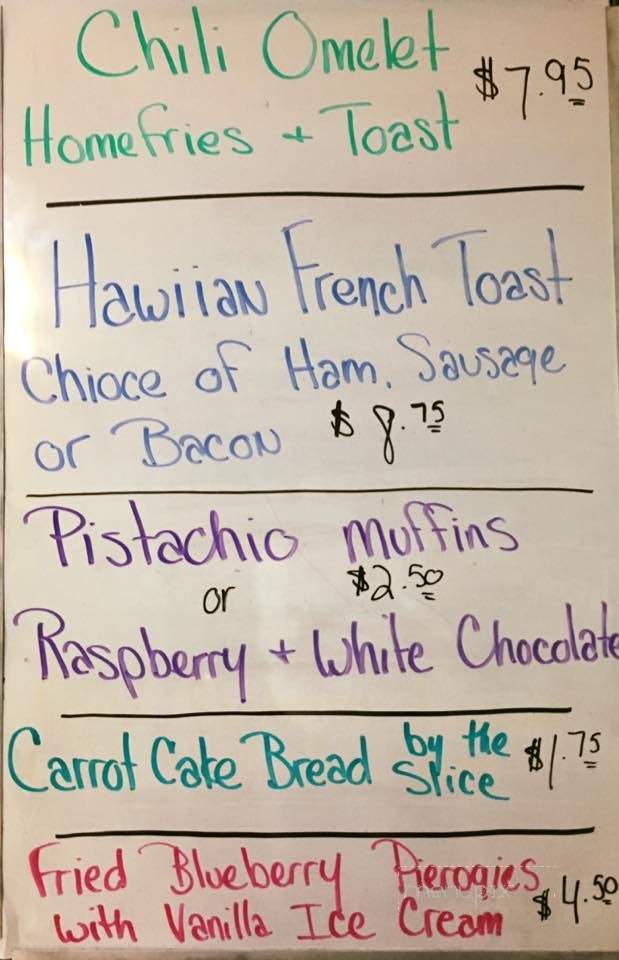 Chili Omelet
Homefries + Toast $7.95
Hawiian French Toast
Chioce of Ham, Sausage
or Bacon $8.75
Pistachio Muffins
or $2.50
Raspberry + White Chocolate
Carrot Cake Bread by the Slice $1.75
Fried Blueberry Pierogies
with Vanilla Ice Cream $4.50